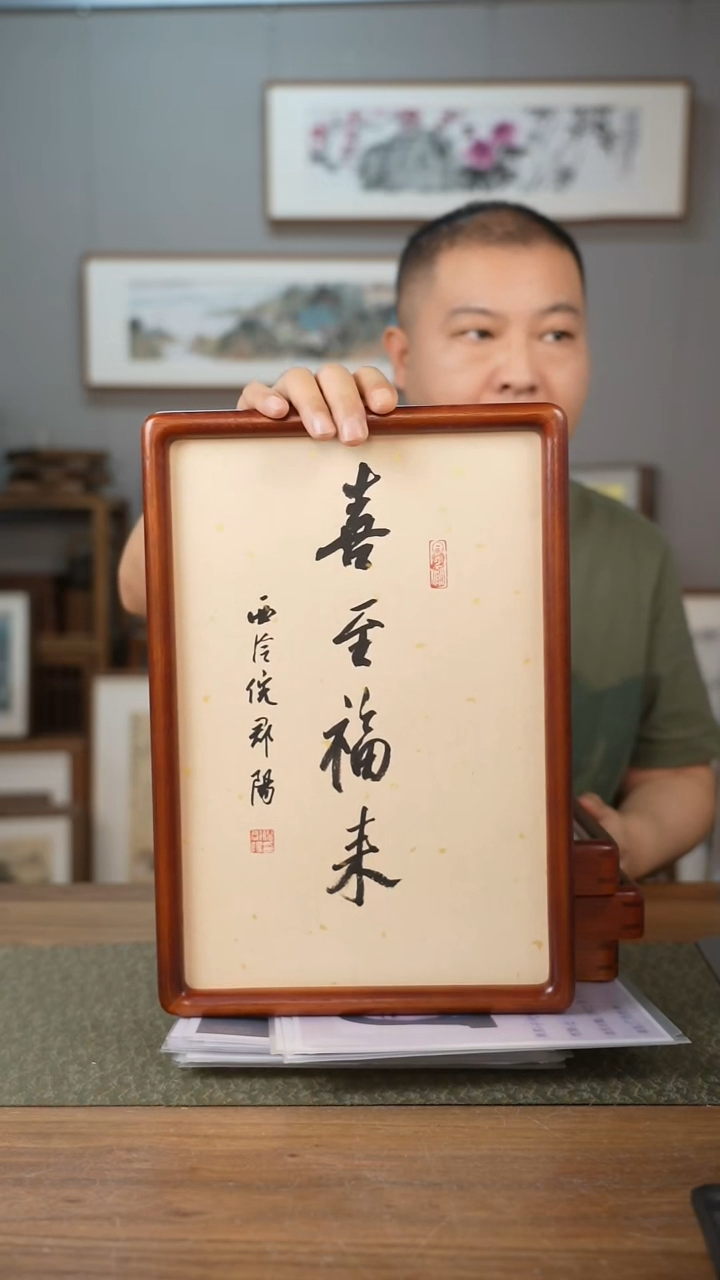 喜至福来
西泠倪郡陽